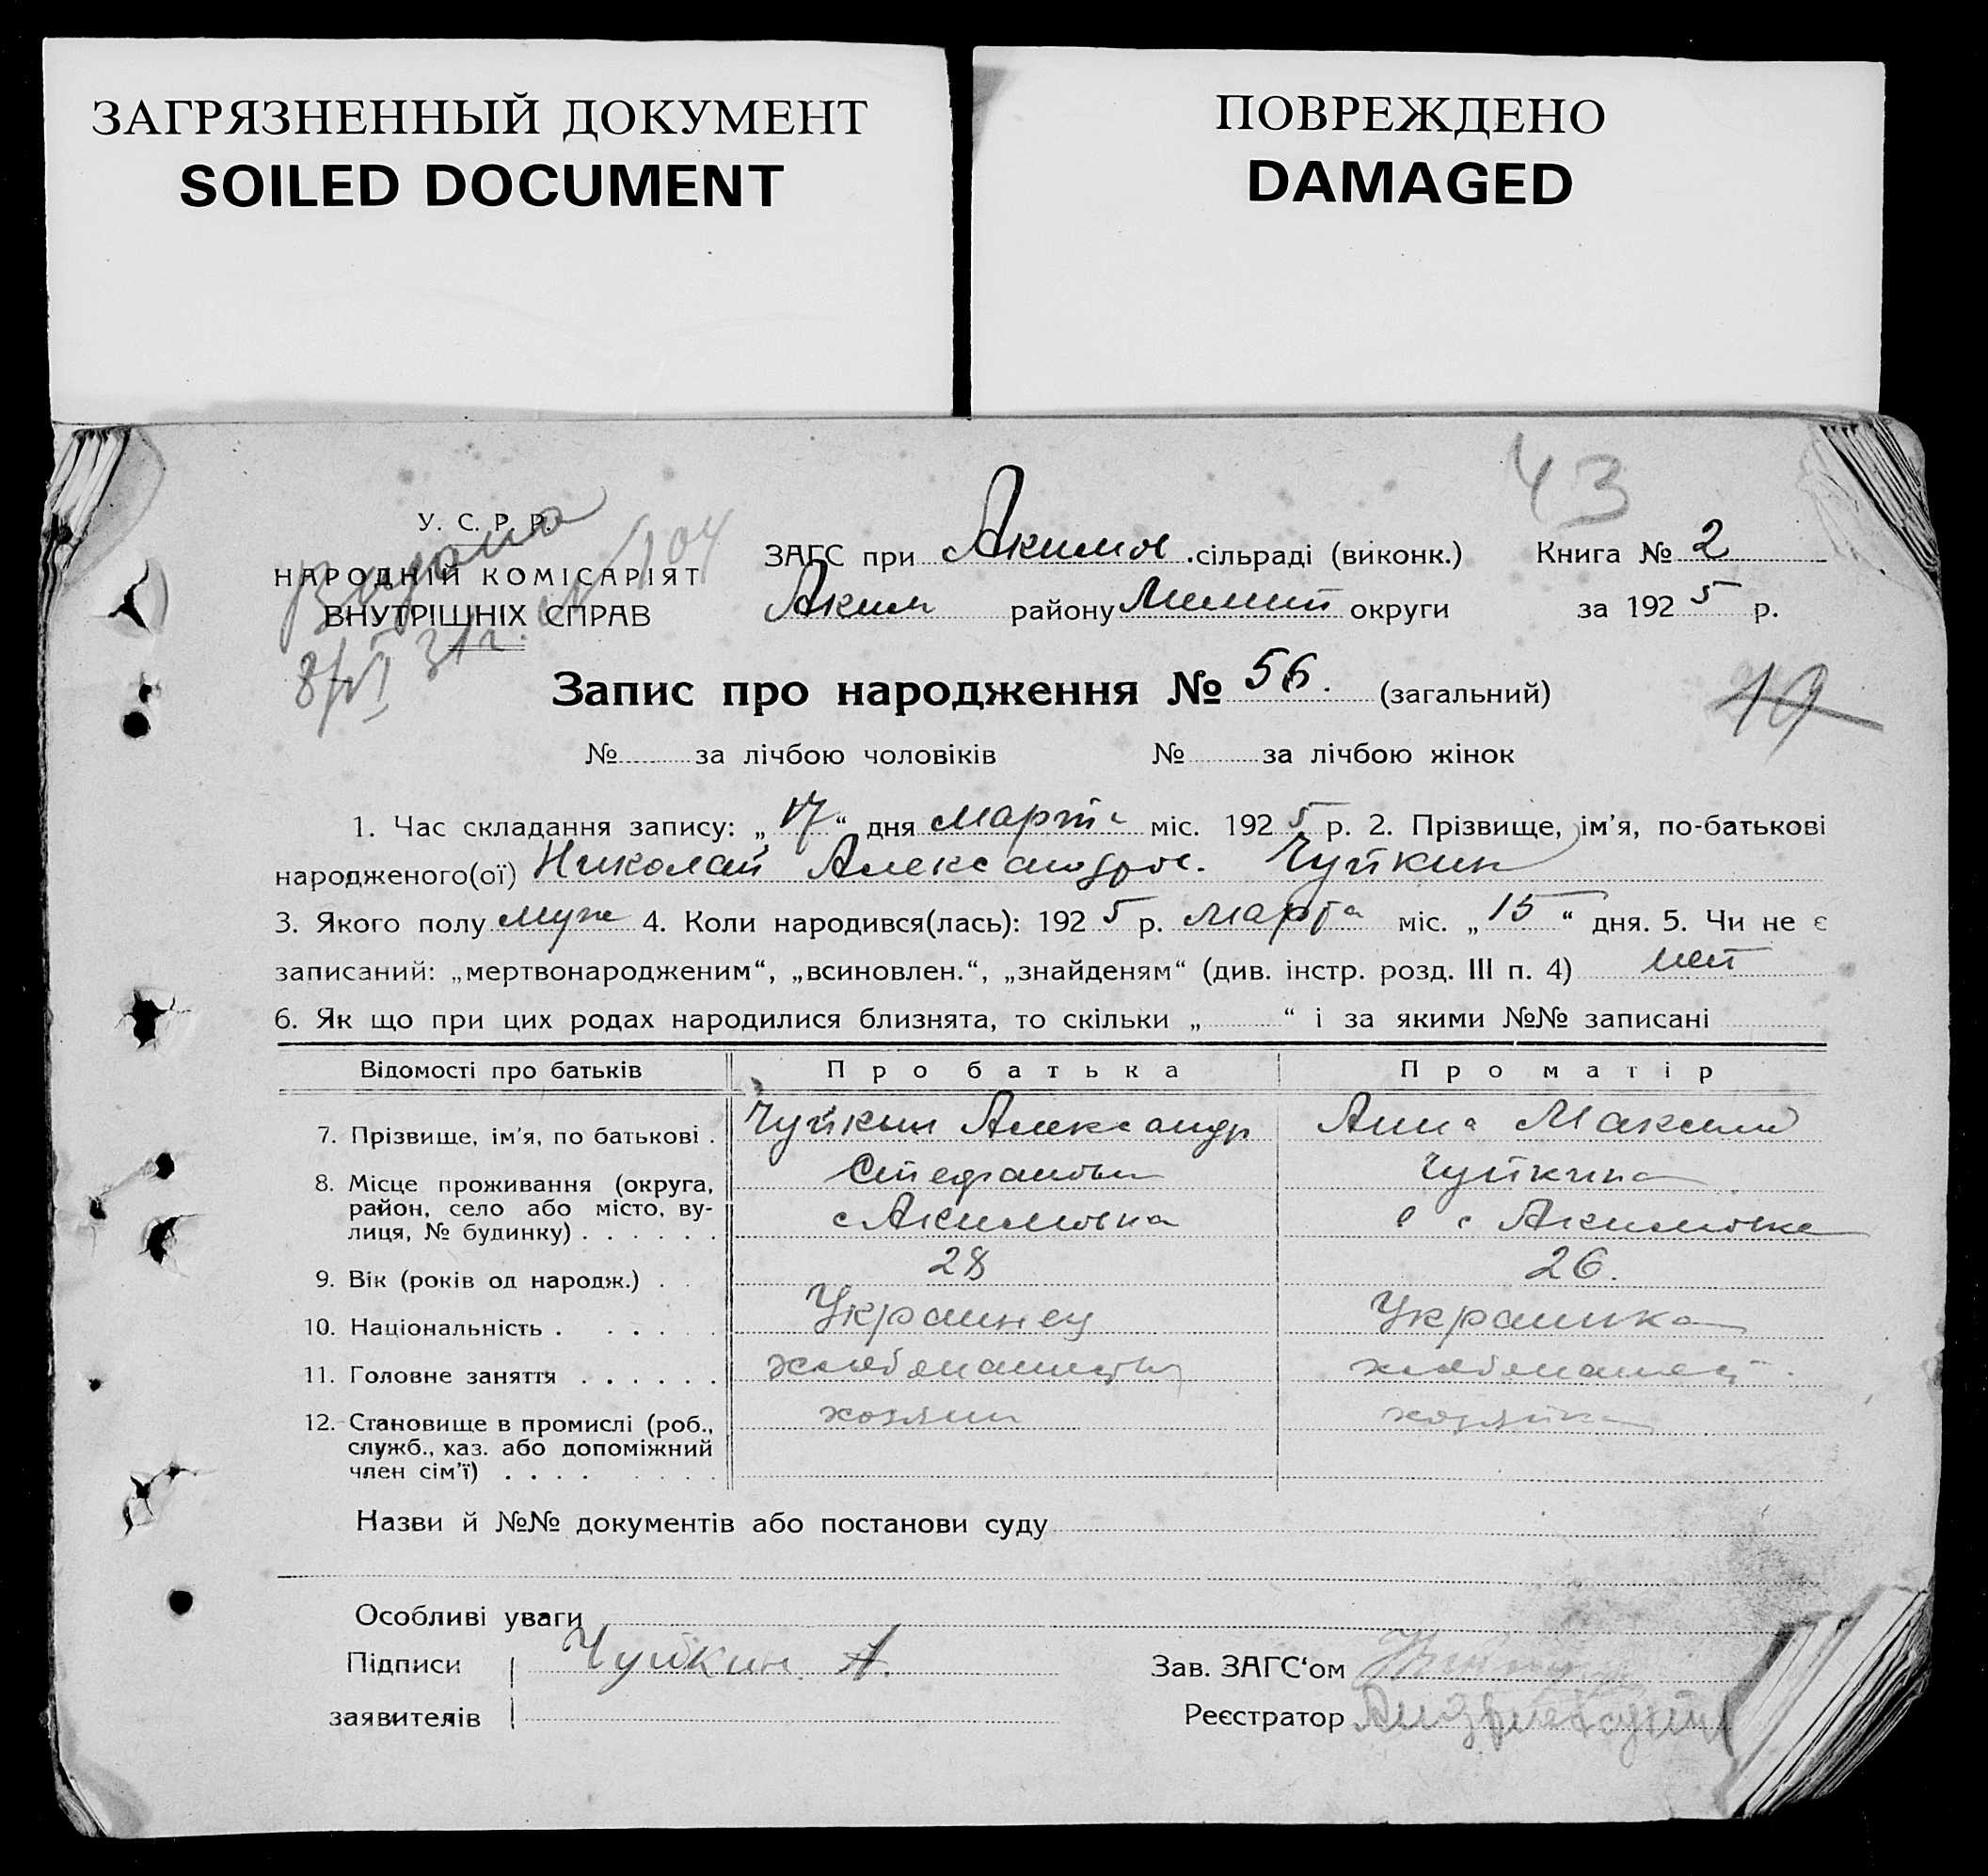 ЗАГРЯЗНЕННЫЙ ДОКУМЕНТ
SOILED DOCUMENT
ПОВРЕЖДЕНО
DAMAGED
43
У. С. Р. Р.
НАРОДНІЙ КОМІСАРІЯТ
ВНУТРІШНІХ СПРАВ
Выдано
№ 104
8/VI 31 г.
ЗАГС при Акимов. сільраді (виконк.) Книга № 2
Аким району Мелит округи за 1925 р.
Запис про народження № 56. (загальний)
19
№ за лічбою чоловіків № за лічбою жінок
1. Час складання запису: „17“ дня марта міс. 1925 р. 2. Прізвище, ім’я, по-батькові
народженого(ої) Николай Александров. Чуйкин
3. Якого полу муж 4. Коли народився(лась): 1925 р. марта міс. „15“ дня. 5. Чи не є
записаний: „мертвонародженим“, „всиновлен.“, „знайденям“ (див. інстр. розд. III п. 4) нет
6. Як що при цих родах народилися близнята, то скільки „ “ і за якими №№ записані
Відомості про батьків Про батька Про матір
7. Прізвище, ім’я, по батькові . Чуйкин Александр Анна Максим
Стефанович Чуйкина
8. Місце проживання (округа,
район, село або місто, ву-
лиця, № будинку) . . . . . . с Акимовка с Акимовка
9. Вік (років од народж.) . . 28 26.
10. Національність . . . . . Украинец Украинка
11. Головне заняття . . . . . .
12. Становище в промислі (роб., хозяин хозяйка
служб., хаз. або допоміжний
член сім’ї) . . . . . . . .
Назви й №№ документів або постанови суду
Особливі уваги
Підписи Чуйкин А. Зав. ЗАГС‘ом
заявителів Реєстратор